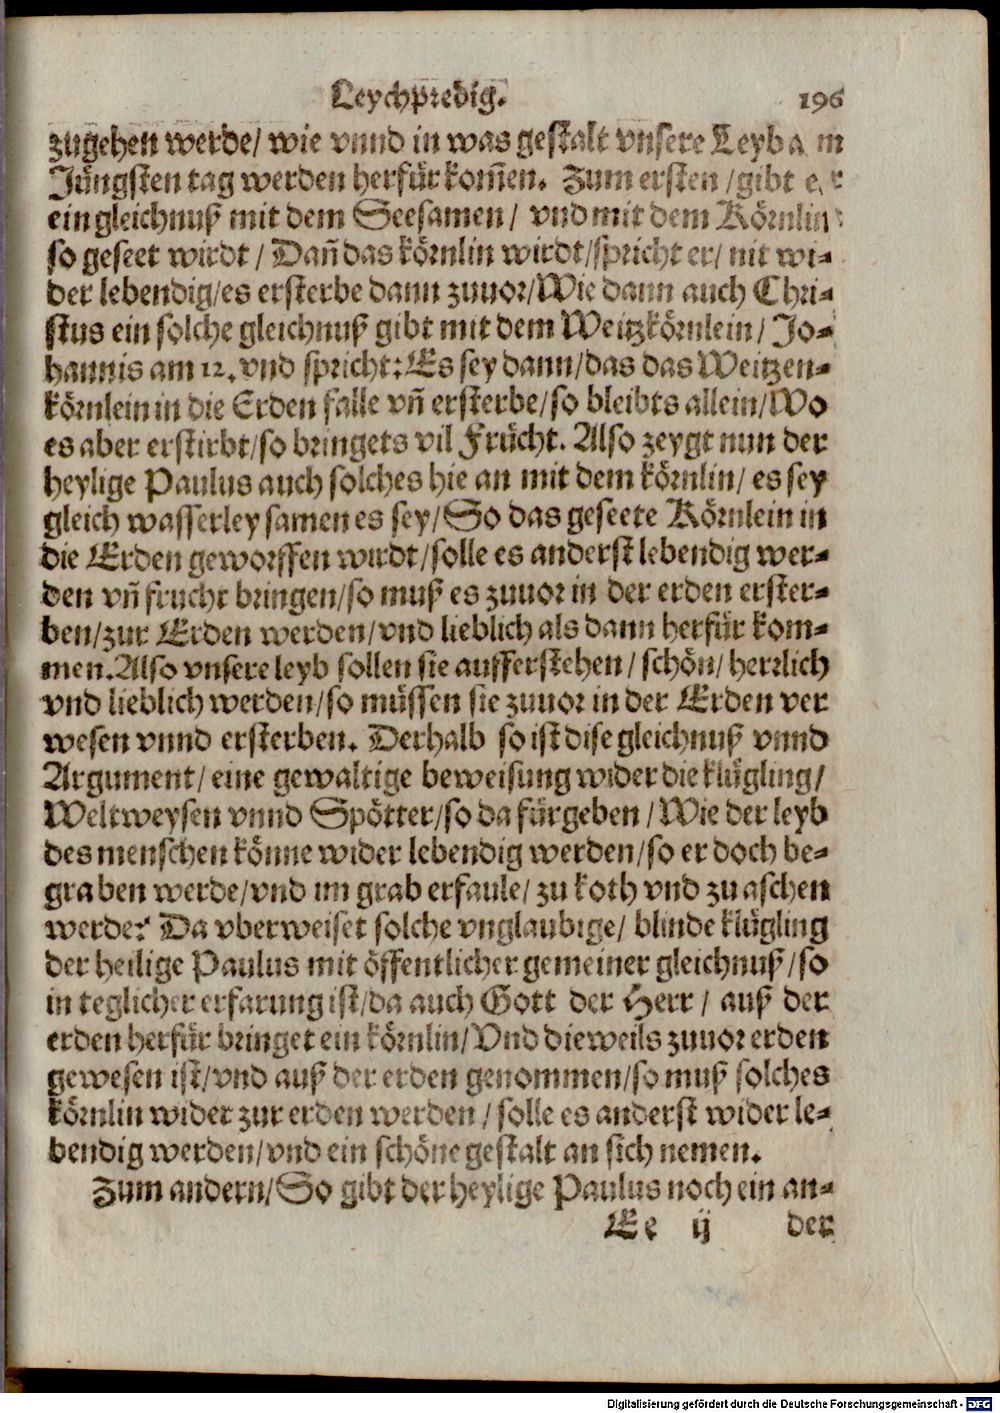 Leychpredig. 196
zugehen werde/ wie vnnd in was gestalt vnsere Leyb am
Jüngsten tag werden herfür kom̃en. Zum ersten/gibt er
ein gleichnuß mit dem Seesamen/ vnd mit dem Körnlin
so geseet wirdt/ Dañ das körnlin wirdt/spricht er/ nit wi-
der lebendig/es ersterbe dann zuuor/Wie dann auch Chri-
stus ein solche gleichnuß gibt mit dem Weitzkörnlein/ Jo-
hannis am 12. vnd spricht: Es sey dann/das das Weitzen-
körnlein in die Erden falle vñ ersterbe/so bleibts allein/Wo
es aber erstirbt/so bringets vil Frücht. Also zeygt nun der
heylige Paulus auch solches hie an mit dem körnlin/ es sey
gleich wasserley samen es sey/So das geseete Körnlein in
die Erden geworffen wirdt/solle es anderst lebendig wer-
den vñ frucht bringen/so muß es zuuor in der erden erster-
ben/zur Erden werden/vnd lieblich als dann herfür kom-
men. Also vnsere leyb sollen sie aufferstehen/ schön/ herrlich
vnd lieblich werden/so müssen sie zuuor in der Erden ver
wesen vnnd ersterben. Derhalb so ist dise gleichnuß vnnd
Argument/ eine gewaltige beweisung wider die klügling/
Weltweysen vnnd Spötter/so da fürgeben/ Wie der leyb
des menschen könne wider lebendig werden/so er doch be-
graben werde/vnd im grab erfaule/ zu koth vnd zu aschen
werde? Da vberweiset solche vnglaubige/ blinde klügling
der heilige Paulus mit öffentlicher gemeiner gleichnuß/so
in teglicher erfarung ist/da auch Gott der Herr/ auß der
erden herfür bringet ein körnlin/Vnd dieweils zuuor erden
gewesen ist/vnd auß der erden genommen/so muß solches
körnlin wider zur erden werden/ solle es anderst wider le-
bendig werden/vnd ein schöne gestalt an sich nemen.
Zum andern/So gibt der heylige Paulus noch ein an-
Ee ij der
Digitalisierung gefördert durch die Deutsche Forschungsgemeinschaft - DFG